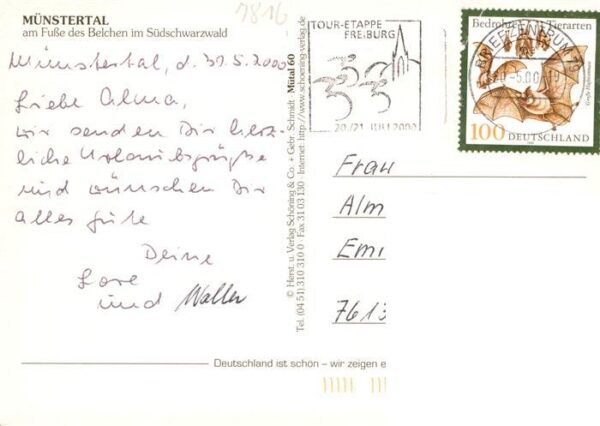 MÜNSTERTAL
am Fuße des Belchen im Südschwarzwald
7816
Münstertal, d. 31.5.2000
Liebe Alma,
wir senden Dir herz-
liche Urlaubsgrüße
und wünschen Dir
alles Gute
Deine
Lore
und Walter
© Herst. u. Verlag Schöning & Co. + Gebr. Schmidt
Mütal 60
Tel. (04 51) 310 310 0 · Fax 31 03 130 · Internet: http://www.schoening-verlag.de
TOUR-ETAPPE
FREIBURG
20./21. JULI 2000
BRIEFZENTRUM 79
Bedrohte Tierarten
Große Hufeisennase
100 DEUTSCHLAND
Frau
Alm
Emi
7613
Deutschland ist schön – wir zeigen e